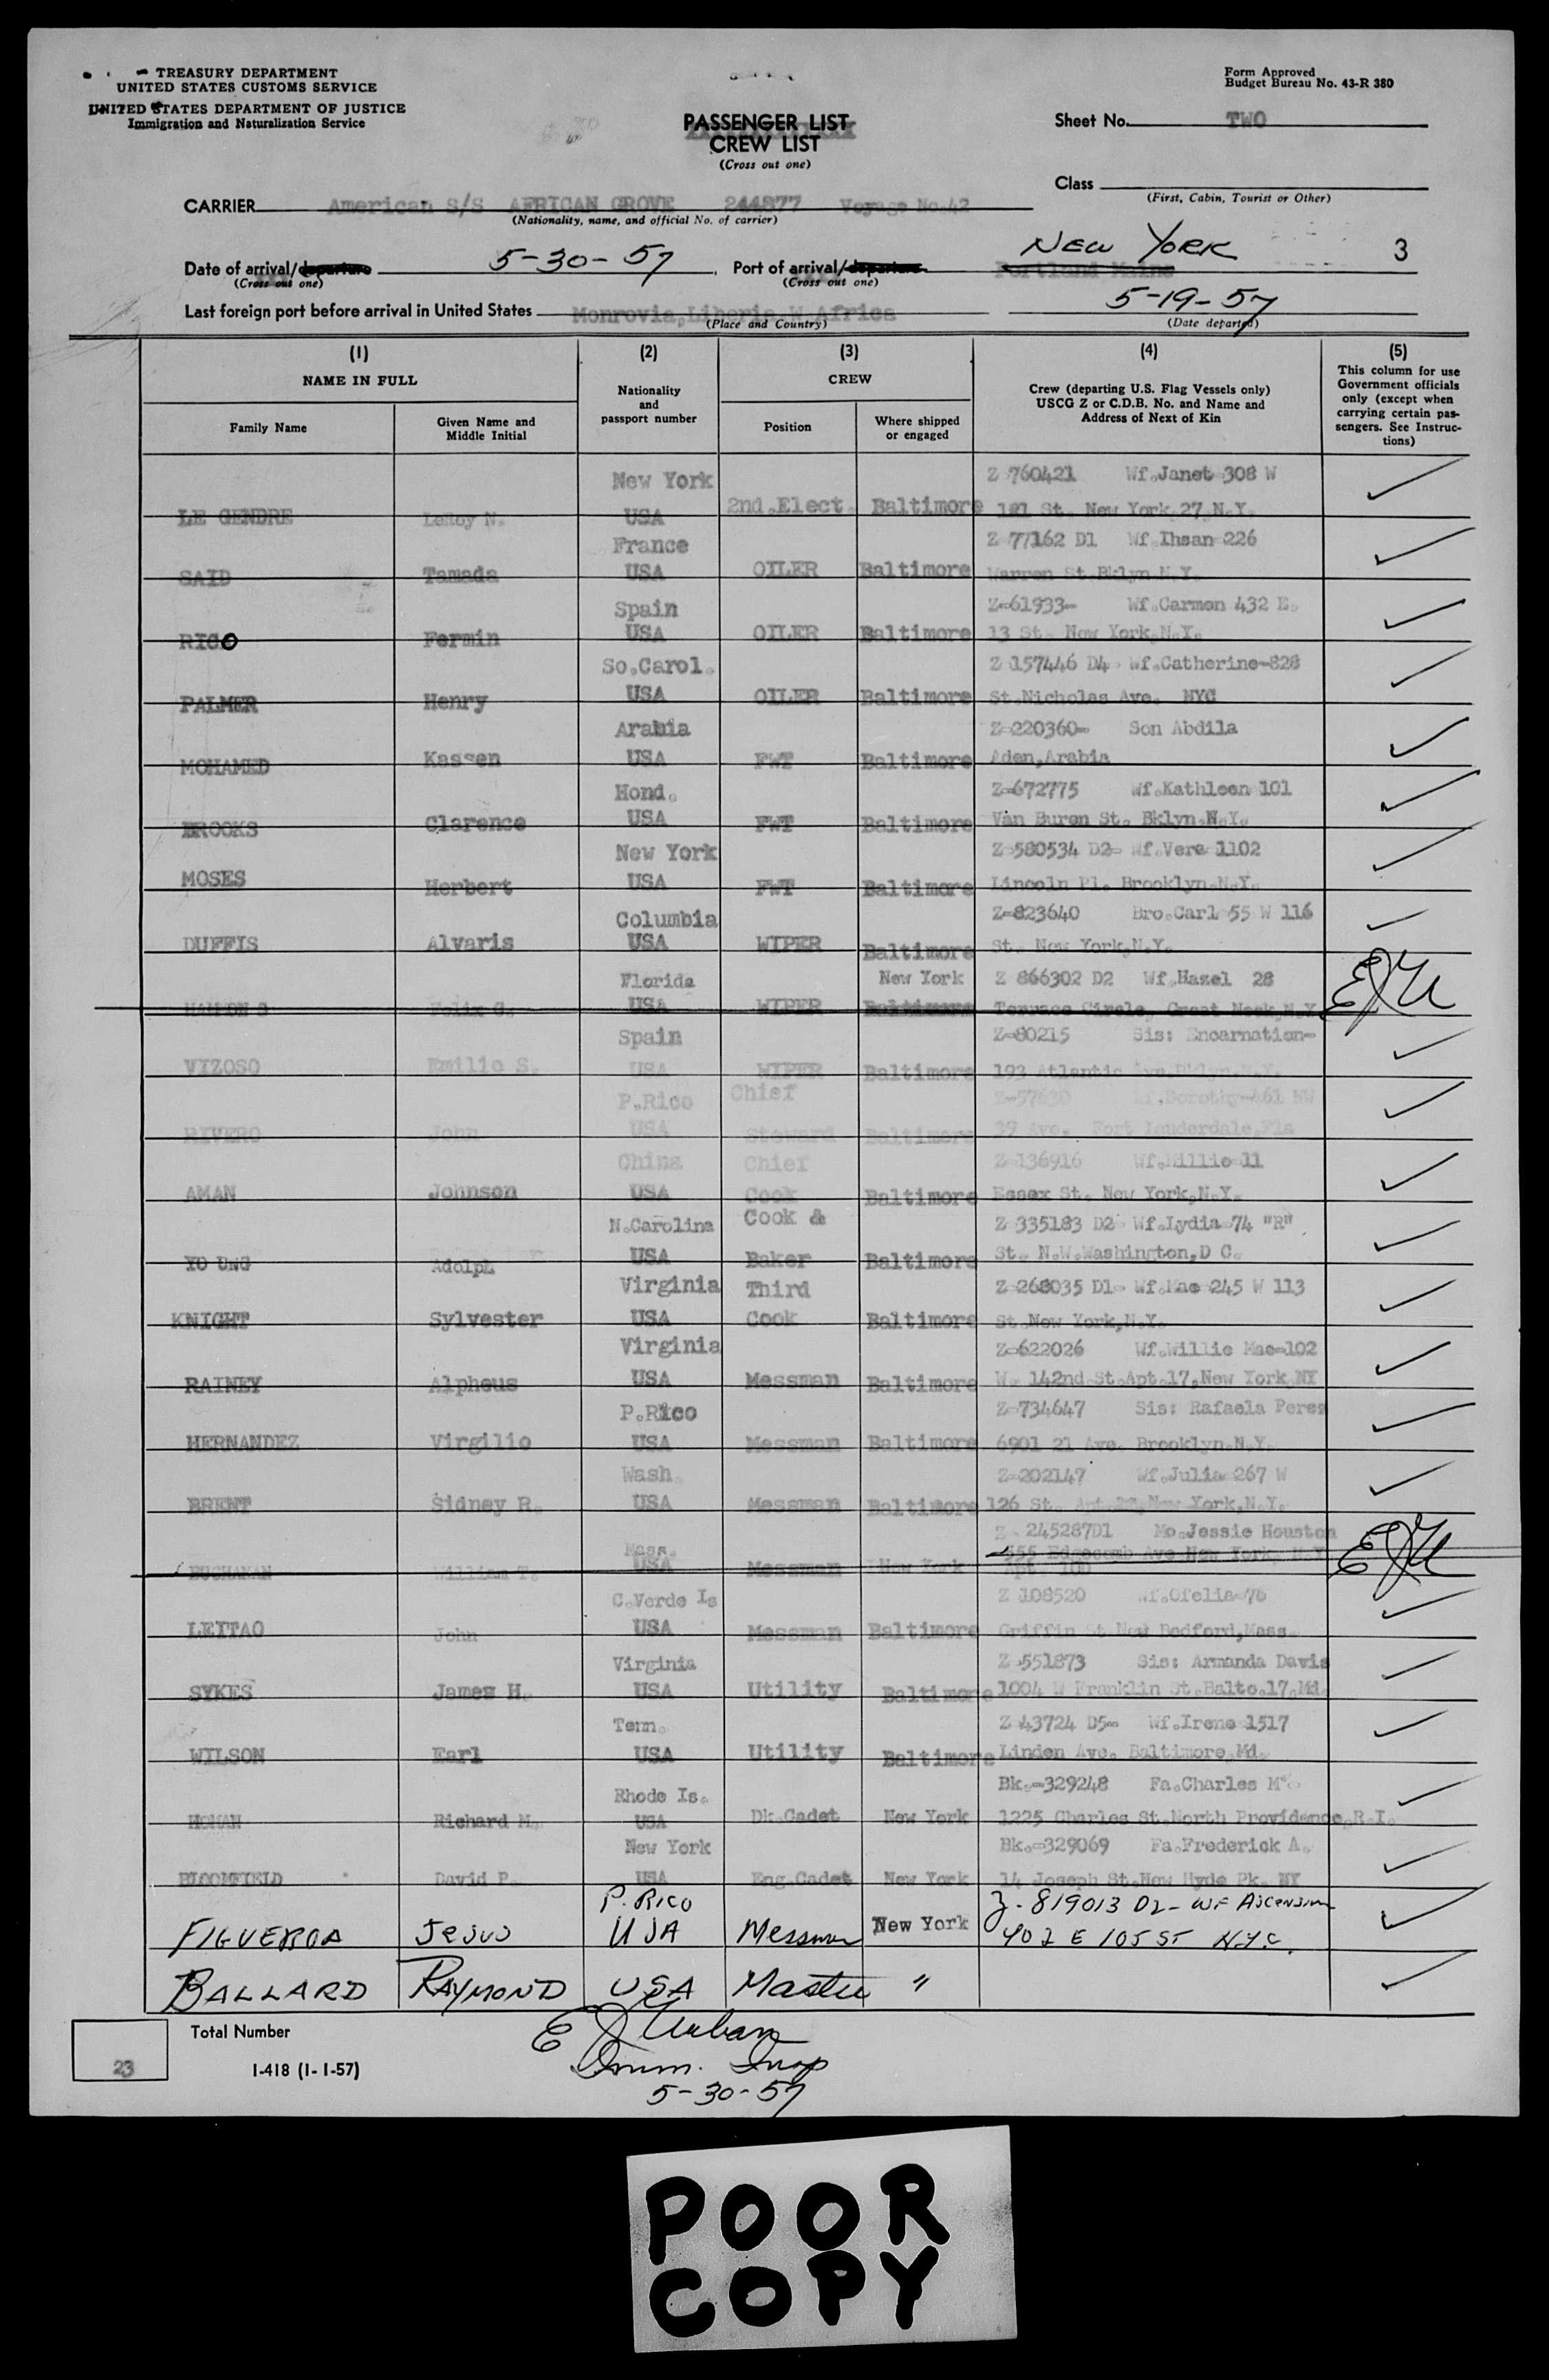 TREASURY DEPARTMENT
UNITED STATES CUSTOMS SERVICE
UNITED STATES DEPARTMENT OF JUSTICE
Immigration and Naturalization Service
Form Approved
Budget Bureau No. 43-R 380
PASSENGER LIST
CREW LIST
(Cross out one)
Sheet No. TWO
Class
(First, Cabin, Tourist or Other)
CARRIER American S/S AFRICAN GROVE 244877 Voyage No.42
(Nationality, name, and official No. of carrier)
Date of arrival/departure 5-30-57, Port of arrival/departure NEW YORK 3
Portland Maine
(Cross out one) (Cross out one)
Last foreign port before arrival in United States Monrovia,Liberia,W.Africa 5-19-57
(Place and Country) (Date departed)
(1) (2) (3) (4) (5)
NAME IN FULL
Nationality and passport number
CREW
Crew (departing U.S. Flag Vessels only) USCG Z or C.D.B. No. and Name and Address of Next of Kin
This column for use Government officials only (except when carrying certain passengers. See Instructions)
Family Name Given Name and Middle Initial Position Where shipped or engaged
New York Z-760421 Wf.Janet 308 W
LE GENDRE LeRoy N. USA 2nd.Elect. Baltimore 121 St. New York 27 N.Y.
France Z 77162 D1 Wf.Ihsan 226
SAID Tamada USA OILER Baltimore Warren St.Bklyn.N.Y.
Spain Z-61933- Wf.Carmen 432 E.
RICO Fermin USA OILER Baltimore 13 St. New York,N.Y.
So.Carol. Z 157446 D4 Wf.Catherine-828
PALMER Henry USA OILER Baltimore St.Nicholas Ave. NYC
Arabia Z-220360- Son Abdila
MOHAMED Kassen USA FWT Baltimore Aden,Arabia
Hond. Z-672775 Wf.Kathleen 101
BROOKS Clarence USA FWT Baltimore Van Buren St. Bklyn.N.Y.
New York Z-580534 D2- Wf.Vera 1102
MOSES Herbert USA FWT Baltimore Lincoln Pl. Brooklyn.N.Y.
Columbia Z-823640 Bro.Carl 55 W 116
DUFFIS Alvaris USA WIPER Baltimore St. New York,N.Y.
Florida New York Z 866302 D2 Wf.Hazel 28
Felix G. USA WIPER Baltimore Terrace Circle, Great Neck,N.Y. EJU
Spain Z-80215 Sis: Encarnation-
VIZOSO Emilio S. USA WIPER Baltimore 193 Atlantic Ave.Bklyn.N.Y.
P.Rico Chief Z-57630 Wf.Dorothy-461 NW
RIVERO John USA Steward Baltimore 39 Ave. Fort Lauderdale,Fla
China Chief Z-136916 Wf.Millie 11
AMAN Johnson USA Cook Baltimore Essex St. New York,N.Y.
N.Carolina Cook & Z 335183 D2 Wf.Lydia 74 "R"
YO UNG Adolph USA Baker Baltimore St. N.W.Washington,D C.
Virginia Third Z-268035 D1- Wf.Mae 245 W 113
KNIGHT Sylvester USA Cook Baltimore St.New York,N.Y.
Virginia Z-622026 Wf.Willie Mae-102
RAINEY Alpheus USA Messman Baltimore W. 142nd St.Apt.17,New York NY
P.Rico Z-734647 Sis: Rafaela Perez
HERNANDEZ Virgilio USA Messman Baltimore 6901 21 Ave. Brooklyn.N.Y.
Wash. Z-202147 Wf.Julia 267 W
BRENT Sidney R. USA Messman Baltimore 126 St. Apt. New York,N.Y.
Mass. Z- 245287D1 Mo.Jessie Houston
BUCHANAN William T. USA Messman New York 555 Edgecomb Ave New York, N.Y. EJU
Apt. 10D
C.Verde Is Z 108520 Wf.Ofelia 76
LEITAO John USA Messman Baltimore Griffin St New Bedford,Mass.
Virginia Z-551873 Sis: Armanda Davis
SYKES James H. USA Utility Baltimore 1004 W Franklin St.Balto.17.Md.
Tenn. Z 43724 D5- Wf.Irene 1517
WILSON Earl USA Utility Baltimore Linden Ave. Baltimore,Md.
Rhode Is. Bk.-329248 Fa.Charles M.
Richard M. USA Dk.Cadet New York 1225 Charles St.North Providence,R.I.
New York Bk.-329069 Fa.Frederick A.
BLOOMFIELD David P. USA Eng.Cadet New York 14 Joseph St.New Hyde Pk. NY
P. RICO Z-819013 D2- WF ASCENSION
FIGUEROA Jesus USA Messman New York 402 E 105 ST N.Y.C.
BALLARD RAYMOND USA Master "
Total Number
23
I-418 (1-1-57)
E J Urban
Imm. Insp
5-30-57
POOR
COPY